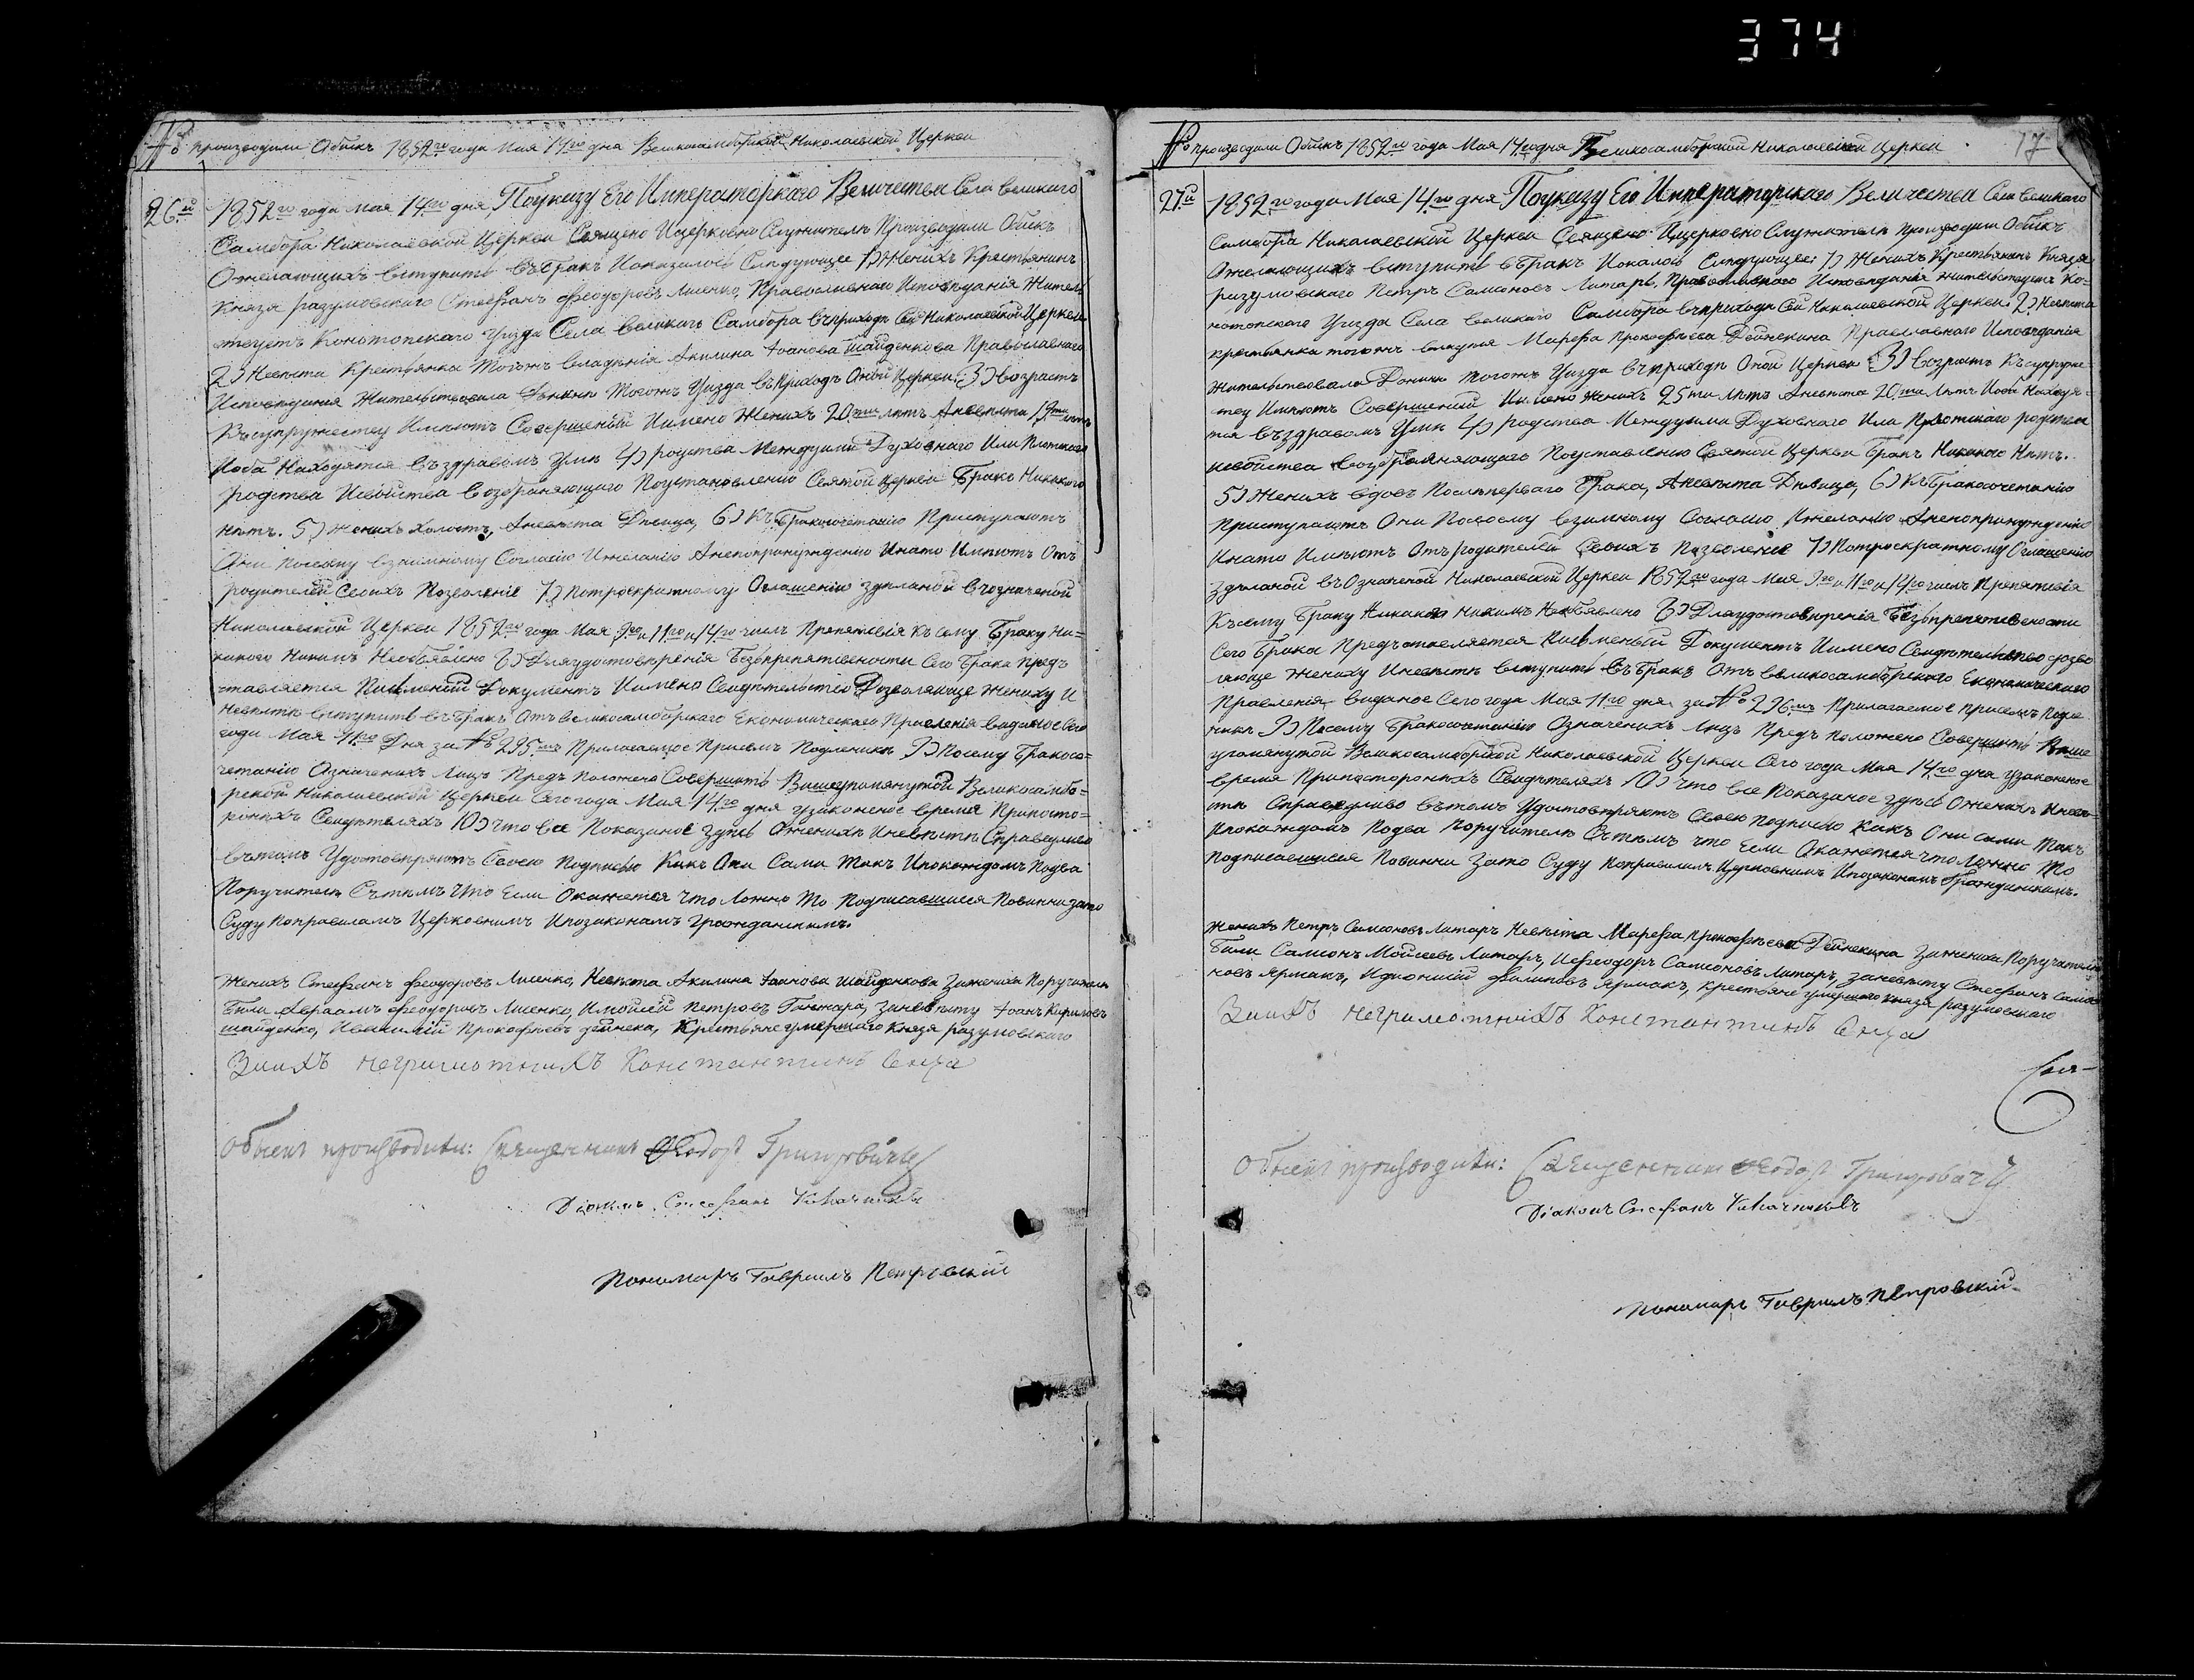 374
№ производили Обыск 1852го года Мая 14го дня Великосамборской Николаевской Церкви
26й
1852го года Мая 14го дня, Поуказу Его Императорскаго Величества Села Великаго
Самбора Николаевской Церкви Священо Ицерковно Служители Производили Обыск
Ожелающихъ вступить въ бракъ Иоказалось Следующее 1) Женихъ Крестьянинъ
Князя разумовскаго Стефанъ Феодоровъ Лисенко, Православнаго Исповеданія Житель
ствуетъ Конотопскаго Уезда Села Великаго Самбора въприходе Сей Николаевской Церкви
2) Невеста Крестьянка Тогожъ владенія Акилина Іоанова Шайденкова Православнаго
Исповеданія Жительствовала Доныне Тогожъ Уезда въ Приходе Оной Церкви. 3) возрастъ
Къ супружеству Имеютъ Совершеный Имено Женихъ 20ти летъ Аневеста 19ти летъ
Иоба Находятся въздравомъ Уме 4) родства Междуими Духовнаго Или Плотскаго
родства Исвойства возбраняющаго Поустановленію Святой Церкви Бракъ Никакого
нетъ. 5) женихъ холостъ, Аневеста Девица, 6) Къ Бракосочетанію Приступаютъ
Они посвоему взаимному Согласію Ижеланію Анепопринужденію Инато Имеютъ Отъ
родителей Своихъ Позволеніе 7) Потроекратному Оглашенію зделаной въозначеной
Николаевской Церкви 1852го года Мая 9го и 11го и 14го чиселъ Препятсвія Къ сему Браку Ни-
какого Никимъ Необъявлено 8) Дляудостоверенія Безпрепятсвености Сего Брака Предъ
ставляется Писменый Документъ Иимено Свидетельство Дозволяюще Жениху И
Невесте вступить въбракъ Отъ Великосамборскаго Економическаго Правленія виданое Сего
года Мая 11го Дня за № 235мъ Прилагаемое Присемъ Подленикъ 9) Посему Бракосо-
четанію Означеныхъ Лицъ Предъ Положено Совершить Вышеупомянутой Великосамбо-
рской Николаевской Церкви Сего года Мая 14го дня узаконеное время Припосто-
роныхъ Свидетеляхъ 10) что все Показаное здесь Оженихе Иневесте Справедливо
въ томъ Удостоверяютъ Своею Подписью Какъ Они Сами Такъ Ипокаждомъ Подва
Поручителя Стемъ что Если Окажется что Ложно то Подписавшиеся Повинны зато
Суду Поправиламъ Церковнымъ Ипозаконамъ Гражданскимъ.
Женихъ Стефанъ Феодоровъ Лисенко, Невеста Акилина Іоанова Шайденкова Зажениха Поручители
Были Авраамъ Феодоровъ Лисенко, Имойсей Петровъ Ганжара, Заневесту Іоанъ Кириловъ
Шайденко, Ивасилій Прокофьевъ Дейнека, Крестьяне умершаго Князя разумовскаго
Занихъ неграмотнихъ Константинъ
Обыскъ производили: Священникъ Феодоръ Григоровичъ
Діаконъ Стефанъ
Пономарь Гавриилъ Петровскій
№ производили Обыскъ 1852го года Мая 14го дня Великосамборской Николаевской Церкви
17
27й
1852го года Мая 14го дня Поуказу Его Императорскаго Величества Села Великаго
Самбора Николаевской Церкви Священо Ицерковно Служители производили Обыскъ
Ожелающихъ вступить въбракъ Иоказалось Следующее: 1) Женихъ Крестьянинъ Князя
разумовскаго Петръ Самсоновъ Литаръ, Православнаго Исповеданія жительствуетъ Ко-
нотопскаго Уезда Села Великаго Самбора въприходе Сей Николаевской Церкви. 2) Невеста
крестьянка тогожъ владенія Марфа Прокофьева Дейнекина Православнаго Исповеданія
Жительствовала Доныне Тогожъ Уезда въприходе Оной Церкви 3) возрастъ Къ супруже-
тву Имеютъ Совершеный Имено женихъ 25ти летъ Аневеста 20ти летъ Иоба Находя-
тся въздравомъ Уме 4) родства Междуими Духовнаго Или Плотскаго родства
исвойства возбраняющаго Поуставленію Святой Церкви Бракъ Никакого Нетъ.
5) Женихъ вдовъ Послепервого Брака, Аневеста Девица, 6) Къ Бракосочетанію
Приступаютъ Они Посвоему взаимному Согласію Ижеланію Анепопринужденію
Инато Имеютъ Отъ родителей Своихъ Позволеніе 7) Потроекратному Оглашенію
Зделаной въ Означеной Николаевской Церкви 1852го года Мая 9го и 11го и 14го чиселъ Препятсвія
Къ сему Браку Никакого никимъ Необъявлено 8) Дляудостоверенія Безпрепятсвености
Сего Брака Предъставляется Писменый Документъ Иимено Свидетельство дозво
ляюще Жениху Иневесте вступить въ Бракъ Отъ Великосамборскаго Економическаго
Правленія виданое Сего года Мая 11го дня за № 236мъ Прилагаемое присемъ Подле
никъ 9) Посему Бракосочетанію Означеныхъ Лицъ Предъ положено Совершить Выше
упомянутой Великосамборской Николаевской Церкви Сего года Мая 14го дня узаконеное
время Припосторонихъ Свидетеляхъ 10) что все Показаное здесь Оженихе Иневе-
сте Справедливо въ томъ Удостоверяютъ Своею Подписью Какъ Они сами Такъ
Ипокаждомъ Подва Поручителя Стемъ что Если Окажется что Ложно то
Подписавшиеся Повинны Зато Суду Поправиламъ Церковнымъ Ипозаконамъ Гражданскимъ.
Женихъ Петръ Самсоновъ Литаръ Невеста Марфа Прокофьева Дейнекина Зажениха Поручители
Были Самсонъ Мойсеевъ Литаръ, Ифеодоръ Самсоновъ Литаръ, Заневесту Стефанъ
новъ Ярмакъ, Идіонисій Филиповъ Ярмакъ, Крестьяне умершаго Князя разумовскаго
Занихъ неграмотнихъ Константинъ
Обыскъ производили: Священникъ Феодоръ Григоровичъ
Діаконъ Стефанъ
Пономарь Гавриилъ Петровскій